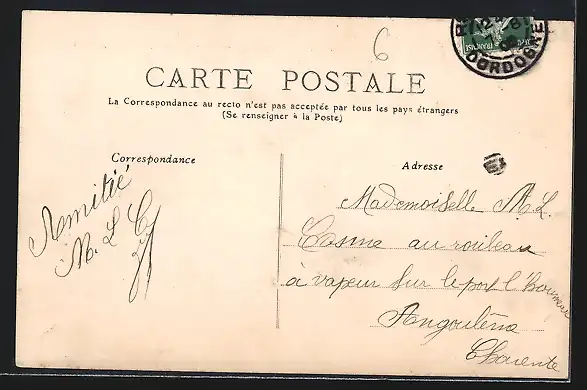 6
DORDOGNE
CARTE POSTALE
La Correspondance au recto n'est pas acceptée par tous les pays étrangers
(Se renseigner à la Poste)
Correspondance
Adresse
Amitié
M. L. C
Mademoiselle M. L.
Cosme au rouleau
à vapeur sur le port l'Houmeau
Angoulêma
Charente